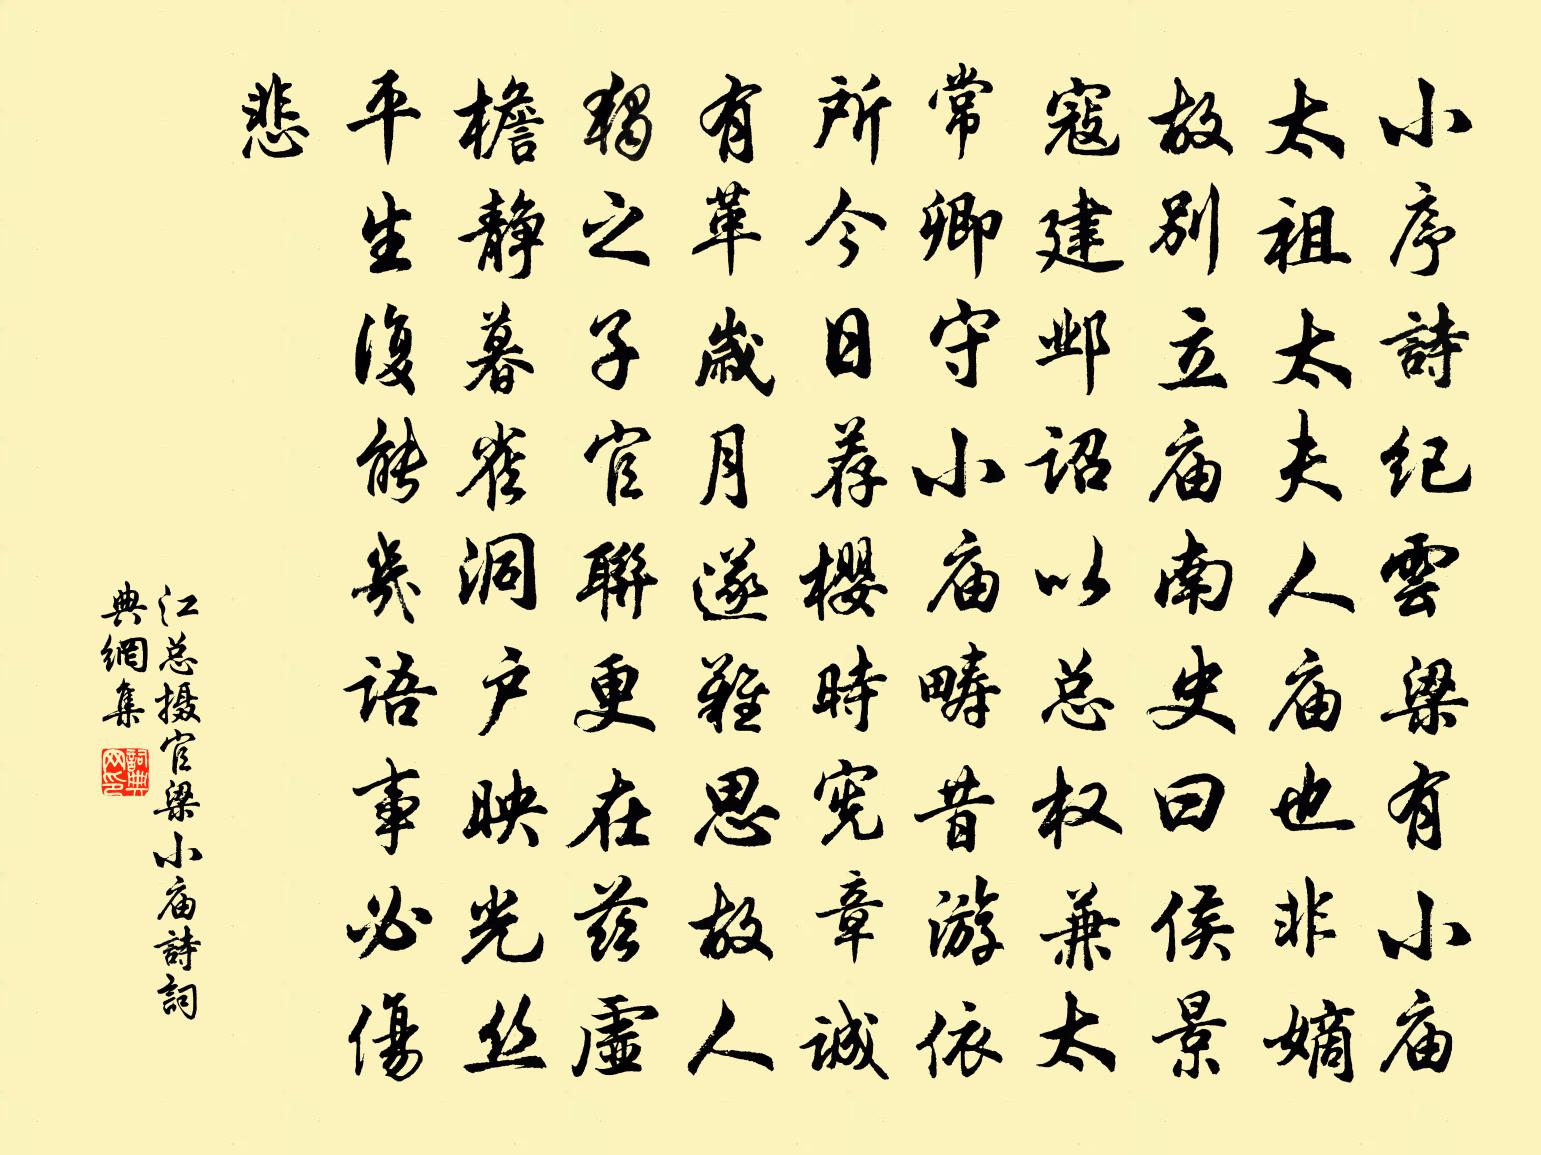 小序詩纪雲梁有小庙
太祖太夫人庙也非嫡
故别立庙南史曰侯景
寇建邺诏以总权兼太
常卿守小庙畴昔游依
所今日荐櫻時宪章誠
有革歲月遂难思故人
独之子官聯更在兹虚
檐静暮雀洞户映光丝
平生復能幾语事必傷
悲
江总摄官梁小庙詩詞
典網集
詞典网印